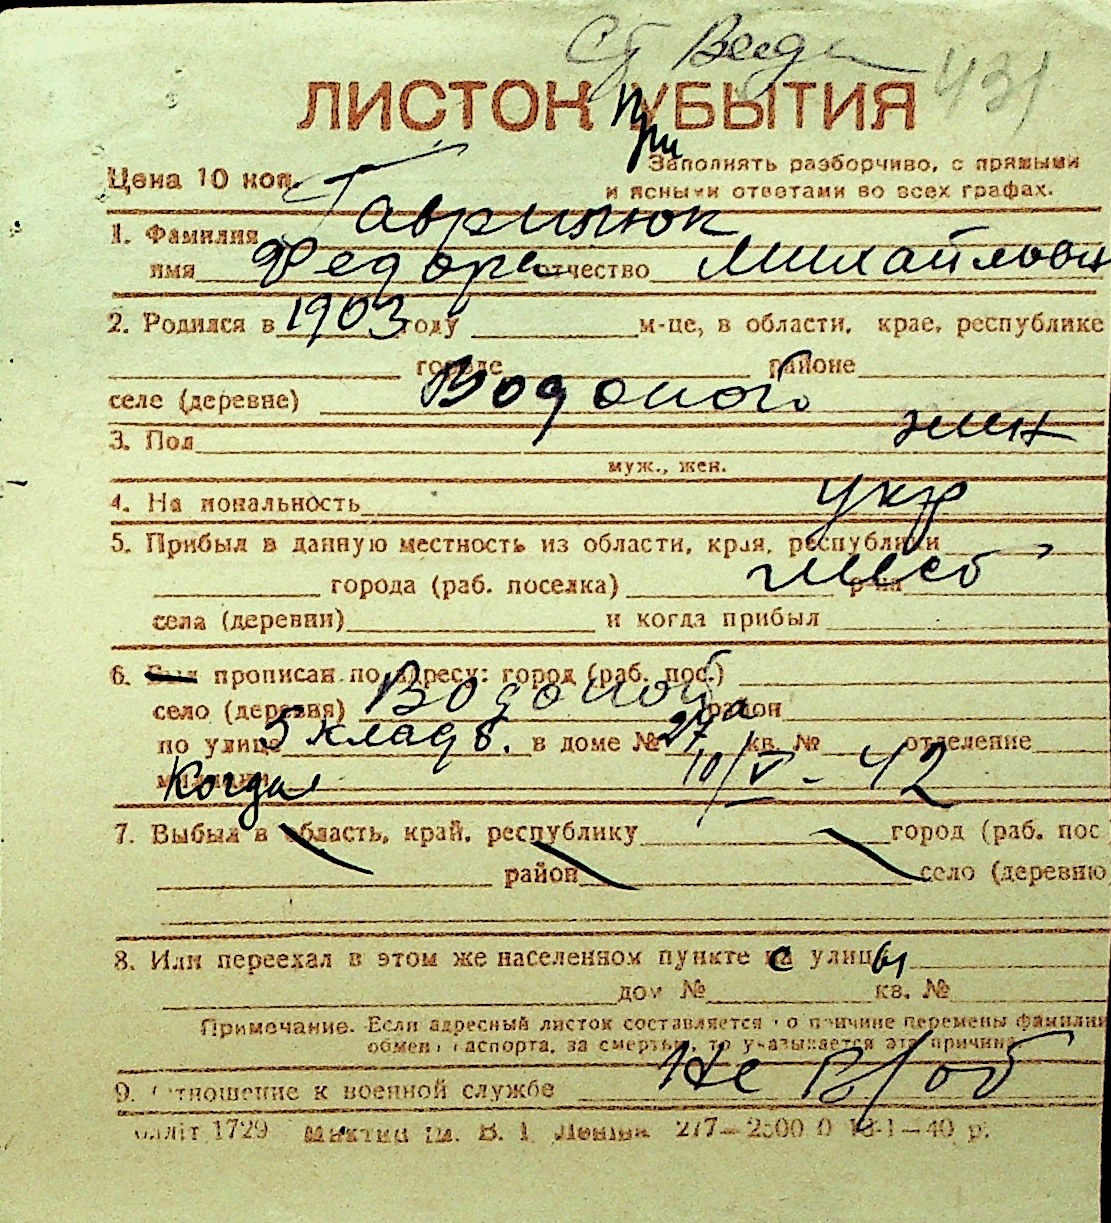 431
ЛИСТОК УБЫТИЯ
При
Заполнять разборчиво, с прямыми
Цена 10 коп.
и ясными ответами во всех графах.
1. Фамилия Гаврилюк
имя Федор отчество Михайлович
2. Родился в 1903 году м-це, в области, крае, республике
городе районе
селе (деревне) Водопой
3. Пол
муж., жен.
4. Национальность укр
5. Прибыл в данную местность из области, края, республики
города (раб. поселка) р-на
села (деревни) и когда прибыл
6. Был прописан по адресу: город (раб. пос.)
село (деревня) Водопой район
по улице 5 кладб. в доме № 27а кв. № отделение
милиции Когда 10/V - 42
7. Выбыл в область, край, республику город (раб. пос
район село (деревню
8. Или переехал в этом же населенном пункте с улицы
дом № кв. №
Примечание. Если адресный листок составляется по причине перемены фамилии
обмена паспорта, за смертью, то указывается эта причина
9. Отношение к военной службе Не в/об
1729 им. В. І. Леніна 277—2500 0 18-1—40 р.